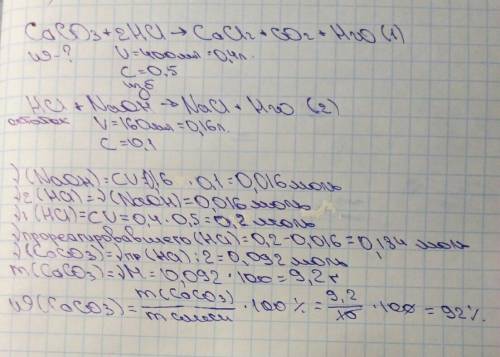 CaCO3 + 2HCl → CaCl2 + CO2 + H2O (1)
ω-? V = 400мл = 0,4л.
C = 0,5
изб
HCl + NaOH → NaCl + H2O (2)
остаток V = 160мл = 0,16л.
C = 0,1
ν(NaOH) = CV = 0,16 · 0,1 = 0,016 моль
ν2(HCl) = ν(NaOH) = 0,016 моль
ν1(HCl) = CV = 0,4 · 0,5 = 0,2 моль
ν прореагировавшего (HCl) = 0,2 - 0,016 = 0,184 моль
ν(CaCO3) = ν пр (HCl) : 2 = 0,092 моль
m(CaCO3) = νM = 0,092 · 100 = 9,2 г
ω(CaCO3) = m(CaCO3) / m смеси · 100% = 9,2 / 10 · 100 = 92%.